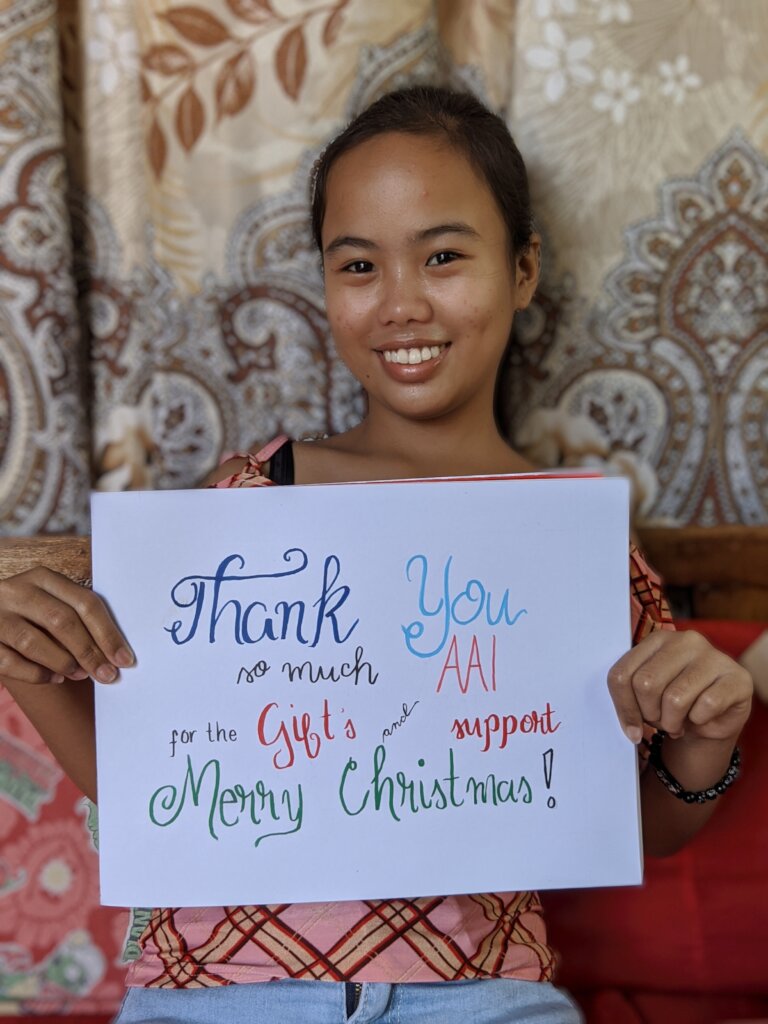 Thank You
so much AAI
for the Gift's and support
Merry Christmas!